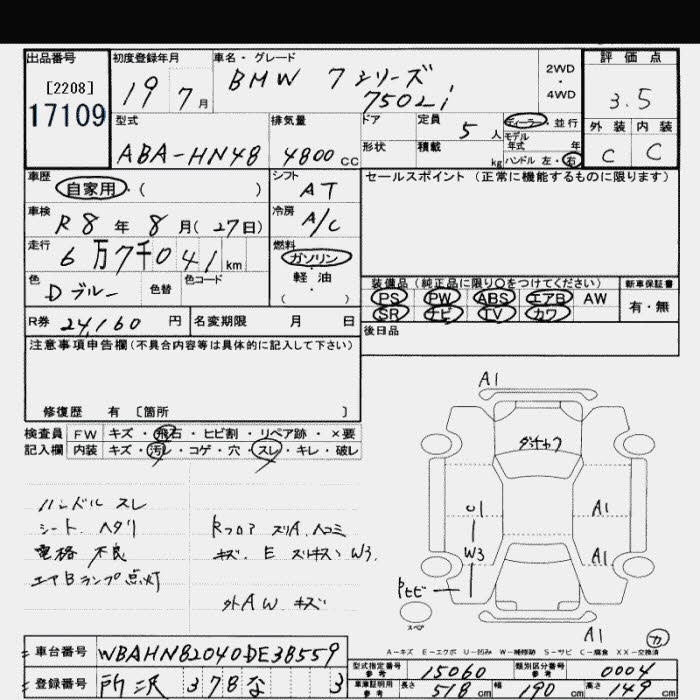 出品番号
[2208]
17109
初度登録年月
19 7月
車名・グレード
BMW 7シリーズ
750Li
2WD
・
4WD
評価点
3.5
外装 内装
C C
型式
ABA-HN48
排気量
4800cc
ドア
形状
定員 5人
積載 kg
ディーラー・並行
モデル年式 年
ハンドル 左・右
車歴
自家用・( )
シフト
AT
セールスポイント(正常に機能するものに限ります)
車検
R8年8月(27日)
冷房
A/C
走行
6万7千041km
燃料
ガソリン
軽・油
( )
色
Dブルー
色替
色コード
装備品(純正品に限り○をつけてください)
PS PW ABS エアB AW
SR ナビ TV カワ
新車保証書
有・無
R券 24,160円
名変期限 月 日
後日品
注意事項申告欄(不具合内容等は具体的に記入して下さい)
修復歴 有 [箇所 ]
検査員
記入欄
FW キズ・飛石・ヒビ割・リペア跡・×要
内装 キズ・汚レ・コゲ・穴・スレ・キレ・破レ
ハンドル スレ
シート ヘタリ
電格 不良
エアBランプ点灯
Rフロア スリA、ヘコミ
キズ、E
W3.
外AW キズ
A1
A1
U1
W3
A1
A1
スペア
カ
A-キズ E-エクボ U-凹み W-補修跡 S-サビ C-腐食 XX-交換済
車台番号 WBAHN82040DE38559
登録番号 所沢 378 な 3
型式指定番号
参考
15060
類別区分番号
参考
0004
車庫証明用
参考
長さ 518cm
幅 190cm
高さ 149cm